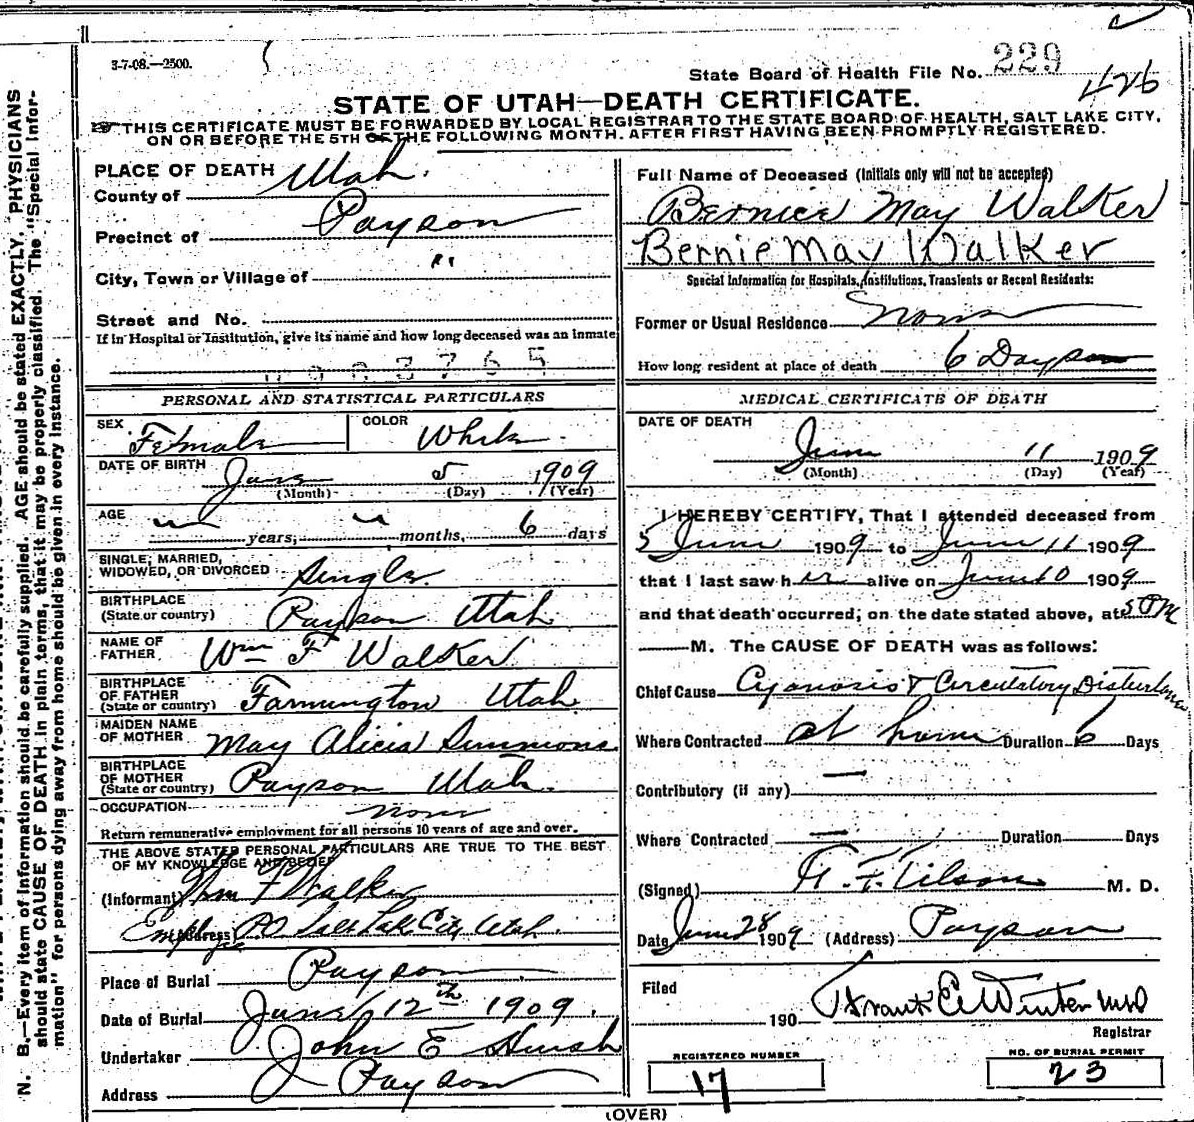 3-7-08.—2500.
State Board of Health File No. 229
426
STATE OF UTAH—DEATH CERTIFICATE.
THIS CERTIFICATE MUST BE FORWARDED BY LOCAL REGISTRAR TO THE STATE BOARD OF HEALTH, SALT LAKE CITY,
ON OR BEFORE THE 5TH OF THE FOLLOWING MONTH. AFTER FIRST HAVING BEEN PROMPTLY REGISTERED.
N. B.—Every item of information should be carefully supplied. AGE should be stated EXACTLY. PHYSICIANS
should state CAUSE OF DEATH in plain terms, that it may be properly classified. The "Special Infor-
mation" for persons dying away from home should be given in every instance.
PLACE OF DEATH
County of Utah.
Precinct of Payson
City, Town or Village of "
Street and No.
If in Hospital or Institution, give its name and how long deceased was an inmate
PERSONAL AND STATISTICAL PARTICULARS
SEX Female COLOR White
DATE OF BIRTH June 5 1909
(Month) (Day) (Year)
AGE — years, — months, 6 days
SINGLE, MARRIED,
WIDOWED, OR DIVORCED Single
BIRTHPLACE
(State or country) Payson Utah
NAME OF
FATHER Wm F Walker
BIRTHPLACE
OF FATHER
(State or country) Farmington Utah
MAIDEN NAME
OF MOTHER May Alicia Simmons
BIRTHPLACE
OF MOTHER
(State or country) Payson Utah.
OCCUPATION none
Return remunerative employment for all persons 10 years of age and over.
THE ABOVE STATED PERSONAL PARTICULARS ARE TRUE TO THE BEST
OF MY KNOWLEDGE AND BELIEF
(Informant) Wm F Walker
Employee (Address) PO Salt Lake City Utah.
Place of Burial Payson
Date of Burial June 12th 1909.
Undertaker John E
Address Payson
Full Name of Deceased (Initials only will not be accepted)
Bernice May Walker
Bernie May Walker
Special Information for Hospitals, Institutions, Transients or Recent Residents:
Former or Usual Residence none
How long resident at place of death 6 Days
MEDICAL CERTIFICATE OF DEATH
DATE OF DEATH
June 11 1909
(Month) (Day) (Year)
I HEREBY CERTIFY, That I attended deceased from
5 June 1909 to June 11 1909
that I last saw her alive on June 10 1909
and that death occurred, on the date stated above, at 5 PM
M. The CAUSE OF DEATH was as follows:
Chief Cause Cyanosis & Circulatory Disturbance
Where Contracted at home Duration 6 Days
Contributory (if any) —
Where Contracted — Duration Days
(Signed) F. Tilson M. D.
Date June 28 1909 (Address) Payson
Filed 190 Frank E Winter MD
Registrar
REGISTERED NUMBER
17
NO. OF BURIAL PERMIT
23
(OVER)